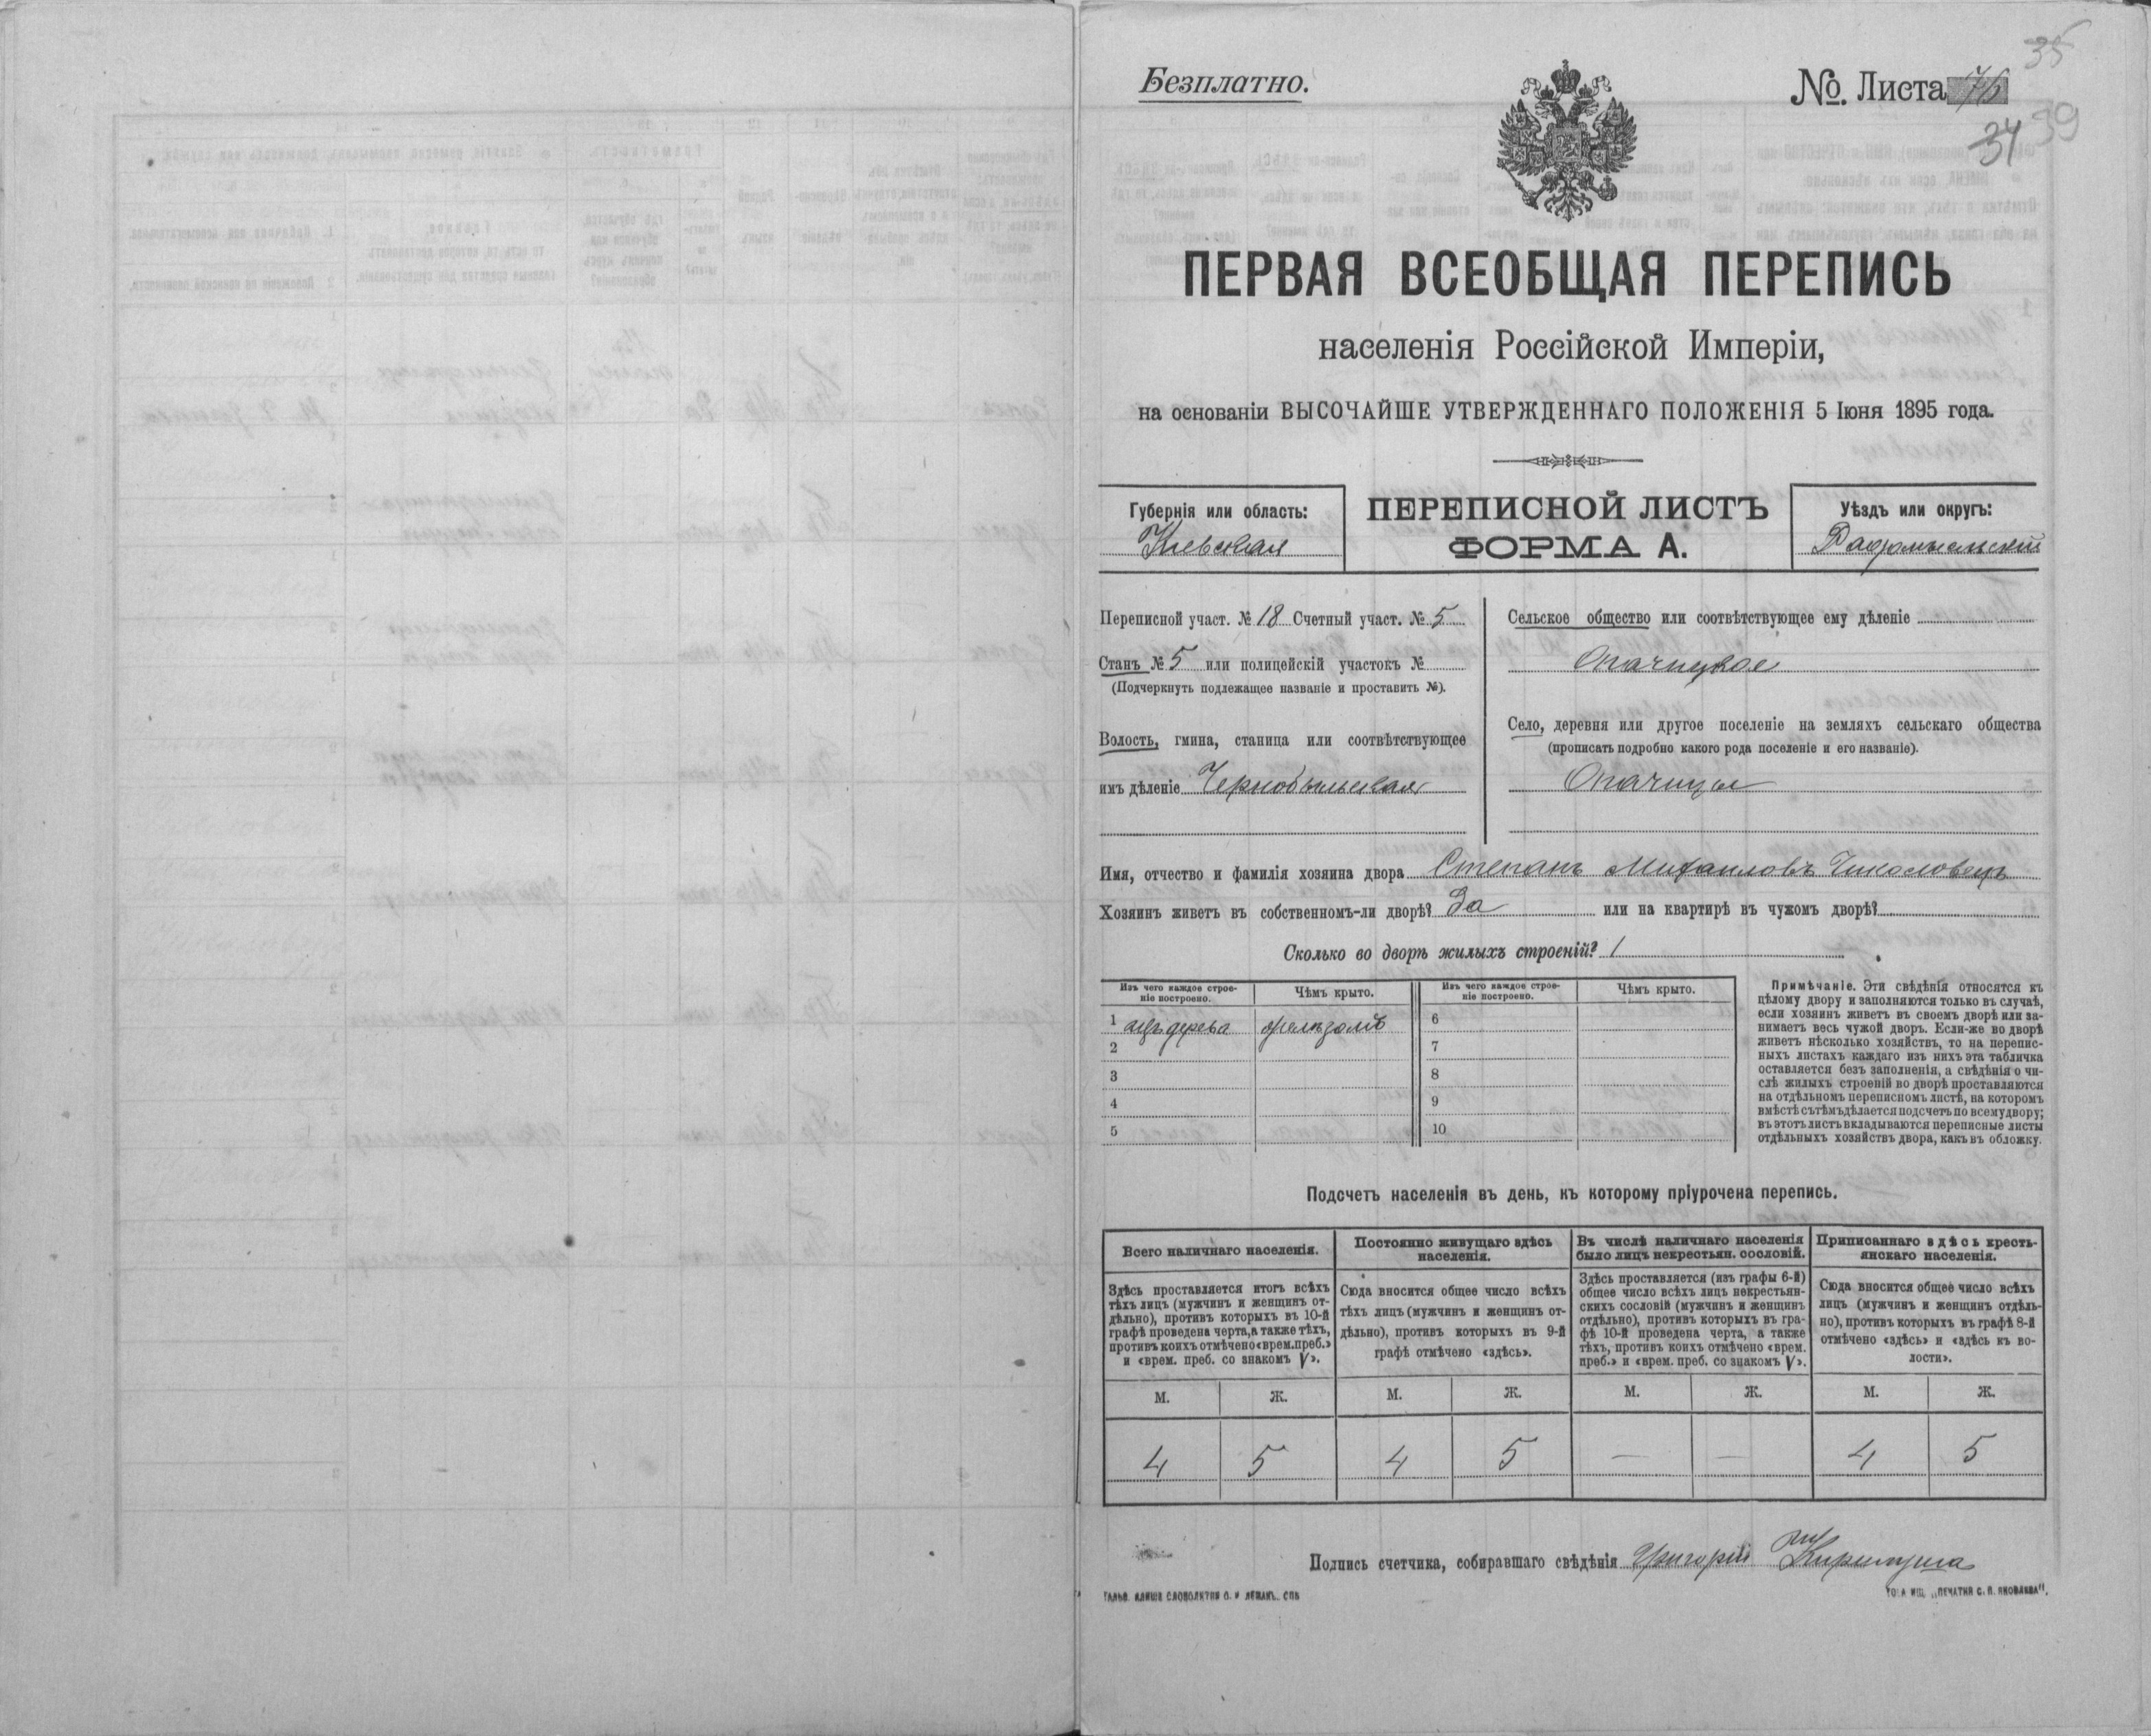 35
Безплатно.
№. Листа 76
34 39
ПЕРВАЯ ВСЕОБЩАЯ ПЕРЕПИСЬ
населенія Россійской Имперіи,
на основаніи ВЫСОЧАЙШЕ УТВЕРЖДЕННАГО ПОЛОЖЕНІЯ 5 Іюня 1895 года.
Губернія или область:
Кіевская
ПЕРЕПИСНОЙ ЛИСТЪ
ФОРМА А.
Уѣздъ или округъ:
Радомысльскій
Переписной участ. № 18 Счетный участ. № 5
Станъ № 5 или полицейскій участокъ №
(Подчеркнуть подлежащее названіе и проставить №).
Волость, гмина, станица или соотвѣтствующее
имъ дѣленіе Чернобыльская
Сельское общество или соотвѣтствующее ему дѣленіе
Опачицкое
Село, деревня или другое поселеніе на земляхъ сельскаго общества
(прописать подробно какого рода поселеніе и его названіе).
Опачицы
Имя, отчество и фамилія хозяина двора Степанъ Михаиловъ Чикаловецъ
Хозяинъ живетъ въ собственномъ-ли дворѣ? Да или на квартирѣ въ чужомъ дворѣ?
Сколько во дворѣ жилыхъ строеній? 1
Изъ чего каждое строе-
ніе построено.
Чѣмъ крыто.
Изъ чего каждое строе-
ніе построено.
Чѣмъ крыто.
1 изъ дерева
6
2
7
3
8
4
9
5
10
Примѣчаніе. Эти свѣдѣнія относятся къ
цѣлому двору и заполняются только въ случаѣ,
если хозяинъ живетъ въ своемъ дворѣ или за-
нимаетъ весь чужой дворъ. Если-же во дворѣ
живетъ нѣсколько хозяйствъ, то на перепис-
ныхъ листахъ каждаго изъ нихъ эта табличка
оставляется безъ заполненія, а свѣдѣнія о чи-
слѣ жилыхъ строеній во дворѣ проставляются
на отдѣльномъ переписномъ листѣ, на которомъ
вмѣстѣ съ тѣмъ дѣлается подсчетъ по всему двору;
въ этотъ листъ вкладываются переписные листы
отдѣльныхъ хозяйствъ двора, какъ въ обложку.
Подсчетъ населенія въ день, къ которому пріурочена перепись.
Всего наличнаго населенія.
Здѣсь проставляется итогъ всѣхъ
тѣхъ лицъ (мужчинъ и женщинъ от-
дѣльно), противъ которыхъ въ 10-й
графѣ проведена черта, а также тѣхъ,
противъ коихъ отмѣчено «врем. преб.»
и «врем. преб. со знакомъ V».
Постоянно живущаго здѣсь
населенія.
Сюда вносится общее число всѣхъ
тѣхъ лицъ (мужчинъ и женщинъ от-
дѣльно), противъ которыхъ въ 9-й
графѣ отмѣчено «здѣсь».
Въ числѣ наличнаго населенія
было лицъ некрестьян. сословій.
Здѣсь проставляется (изъ графы 6-й)
общее число всѣхъ лицъ некрестьян-
скихъ сословій (мужчинъ и женщинъ
отдѣльно), противъ которыхъ въ гра-
фѣ 10-й проведена черта, а также
тѣхъ, противъ коихъ отмѣчено «врем.
преб.» и «врем. преб. со знакомъ V».
Приписаннаго здѣсь кресть-
янскаго населенія.
Сюда вносится общее число всѣхъ
лицъ (мужчинъ и женщинъ отдѣль-
но), противъ которыхъ въ графѣ 8-й
отмѣчено «здѣсь» и «здѣсь въ во-
лости».
М. Ж. М. Ж. М. Ж. М. Ж.
4 5 4 5 — — 4 5
Подпись счетчика, собиравшаго свѣдѣнія Григорій